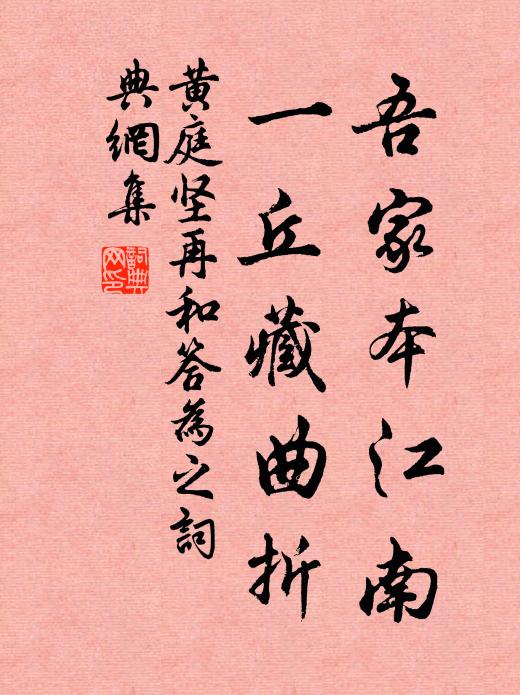 吾家本江南
一丘藏曲折
黄庭坚再和答為之詞
典網集
詞典
网印